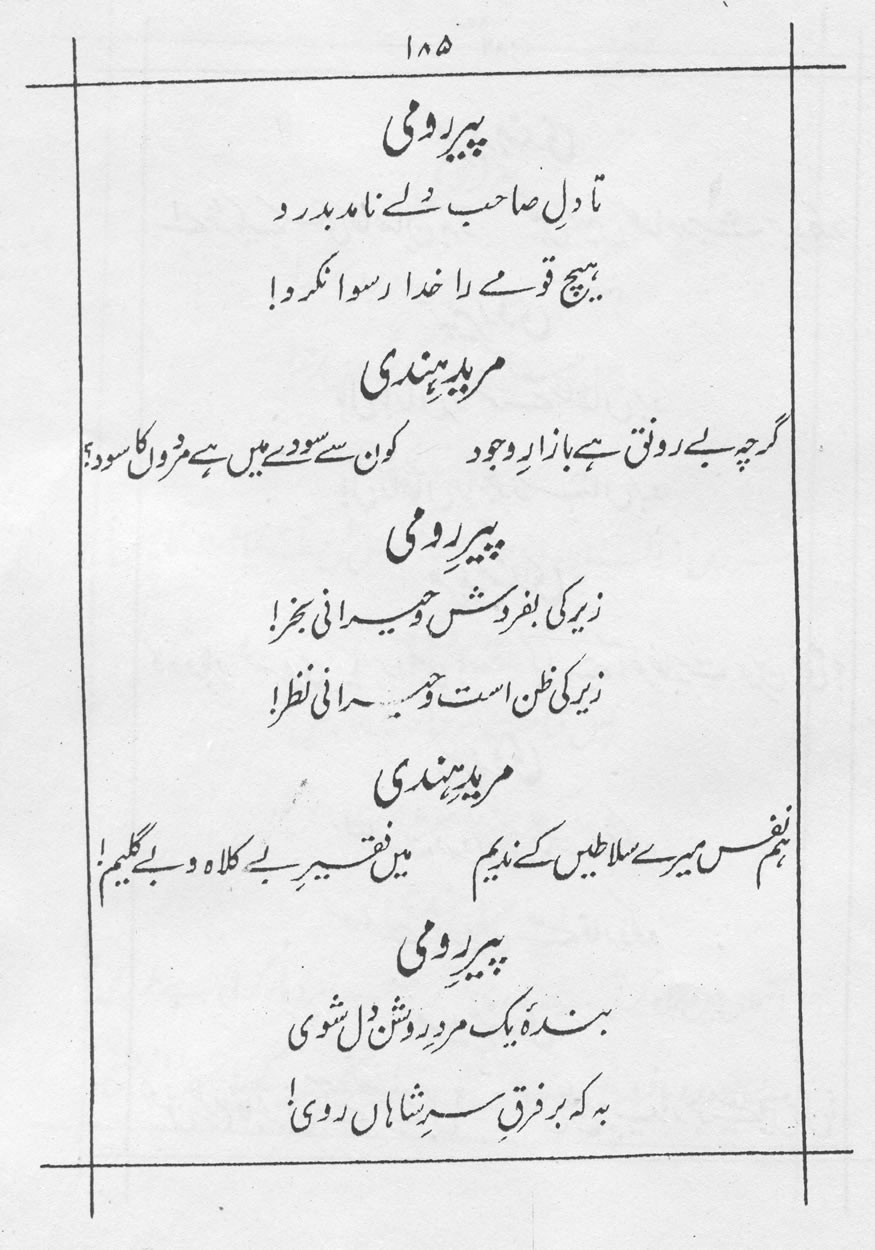 ۱۸۵
پیرِ رومی
تا دلِ صاحب دلے نامد بدرد
ہیچ قومے را خدا رسوا نکرد!
مریدِ ہندی
گرچہ بے رونق ہے بازارِ وجود کون سے سودے میں ہے مردوں کا سود؟
پیرِ رومی
زیرکی بفروش و حیرانی بخر!
زیرکی ظن است و حیرانی نظر!
مریدِ ہندی
ہم نفس میرے سلاطیں کے ندیم میں فقیرِ بے کلاہ و بے گلیم!
پیرِ رومی
بندۂ یک مردِ روشن دل شوی
بہ کہ بر فرقِ سرِ شاہاں روی!